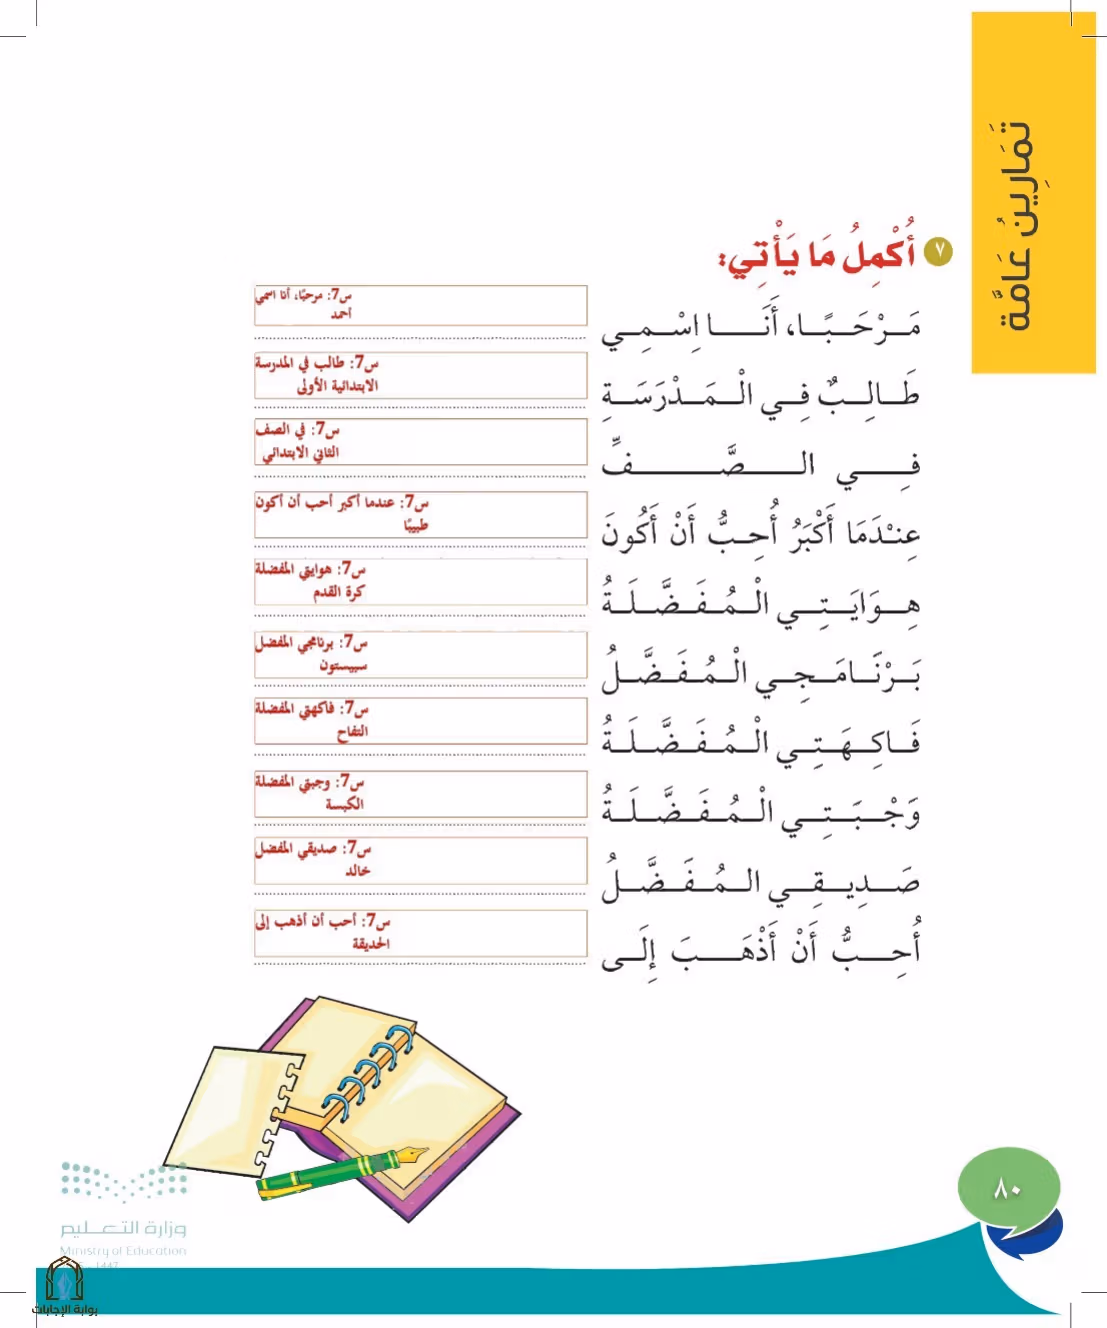 تَمَارِينُ عَامَّة
٧ أُكْمِلُ مَا يَأْتِي:
مَـرْحَـبًـا، أَنَـا اِسْـمِـي
س7: مرحبًا، أنا اسمي
أحمد
طَـالِـبٌ فِـي الْـمَـدْرَسَـةِ
س7: طالب في المدرسة
الابتدائية الأولى
فِـي الـصَّـفِّ
س7: في الصف
الثاني الابتدائي
عِنْدَمَا أَكْبَرُ أُحِبُّ أَنْ أَكُونَ
س7: عندما أكبر أحب أن أكون
طبيبًا
هِـوَايَـتِـي الْـمُـفَـضَّـلَـةُ
س7: هوايتي المفضلة
كرة القدم
بَـرْنَـامَـجِـي الْـمُـفَـضَّـلُ
س7: برنامجي المفضل
سبيستون
فَـاكِـهَـتِـي الْـمُـفَـضَّـلَـةُ
س7: فاكهتي المفضلة
التفاح
وَجْـبَـتِـي الْـمُـفَـضَّـلَـةُ
س7: وجبتي المفضلة
الكبسة
صَـدِيـقِـي الـمُـفَـضَّـلُ
س7: صديقي المفضل
خالد
أُحِـبُّ أَنْ أَذْهَـبَ إِلَـى
س7: أحب أن أذهب إلى
الحديقة
٨٠
وزارة التعـليم
Ministry of Education
1447
بوابة الإجابات